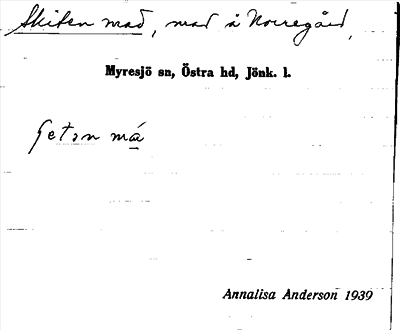 Skiten mad, mad å Norregård,
Myresjö sn, Östra hd, Jönk. l.
má
Annalisa Anderson 1939